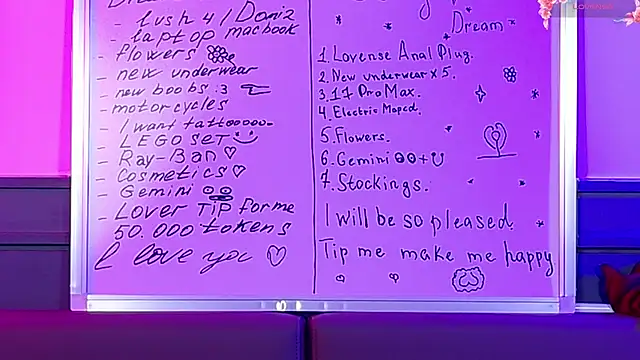 - lush 4/Domi2
- laptop macbook
- flowers
- new underwear
- new boobs :3
- motorcycles
- I want tattooooo-
- LEGO SET
- Ray-Ban ♡
- Cosmetics ♡
- Gemini
- Lover Tip for me
50.000 tokens
I love you ♡
Dream
1. Lovense Anal Plug.
2. New underwear x 5.
3. 17 Pro Max.
4. Electric Moped.
5. Flowers.
6. Gemini
7. Stockings.
I will be so pleased.
Tip me make me happy